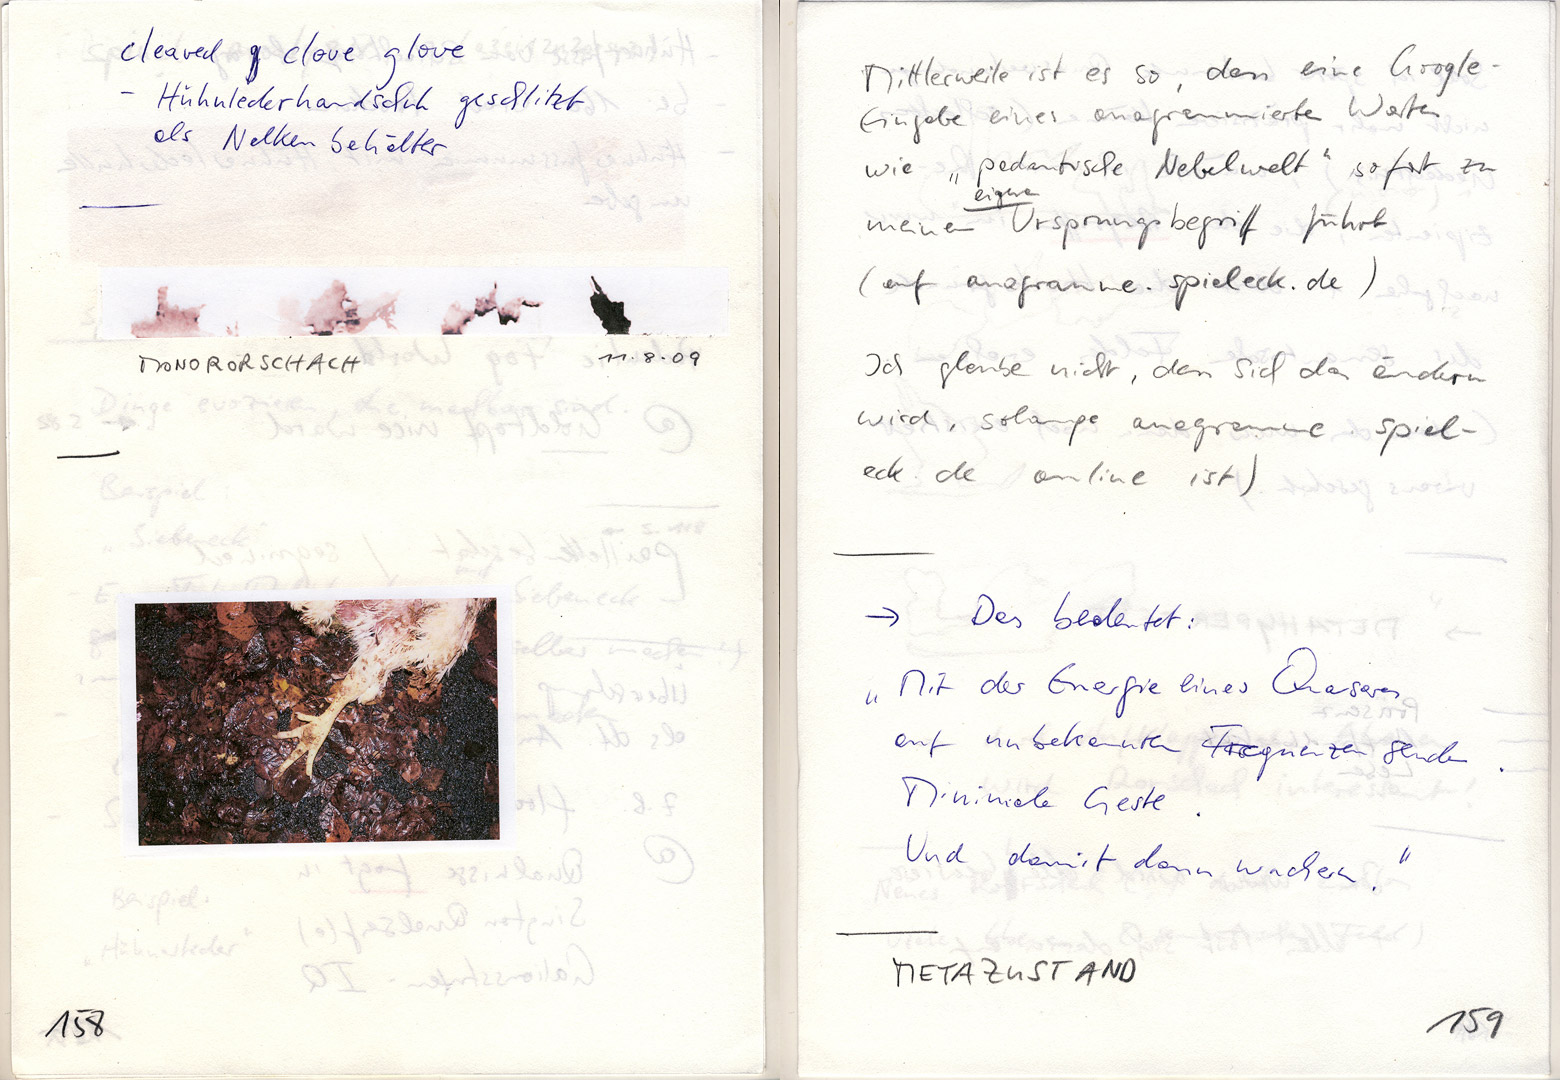 cleaved clove glove
- Hühnlederhandschuh geschlitzt
als Nelkenbehälter
MONORORSCHACH 11.8.09
158
Mittlerweile ist es so, dass eine Google-
Eingabe eines anagrammierten Wortes
wie „pedantische Nebelwelt" sofort zu
eigenen
meinem Ursprungsbegriff führt
(auf anagramme.spieleck.de)
Ich glaube nicht, dass sich das ändern
wird, solange anagramme.spiel-
eck.de online ist)
→ Das bedeutet:
„Mit der Energie eines Quasars
auf unbekannten Frequenzen senden.
Minimale Geste.
Und damit dann wuchern."
METAZUSTAND
159